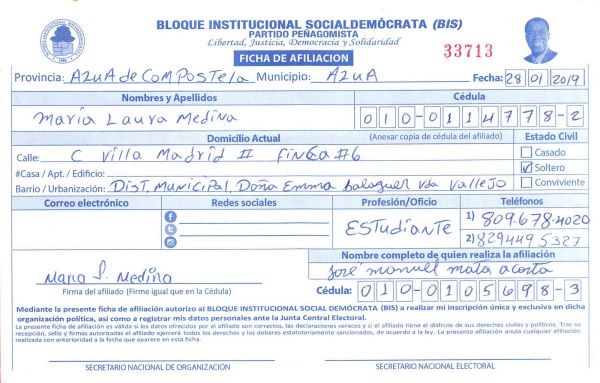 BLOQUE INSTITUCIONAL SOCIALDEMÓCRATA (BIS)
PARTIDO PEÑAGOMISTA
Libertad, Justicia, Democracia y Solidaridad
FICHA DE AFILIACION
33713
Provincia: AZUA de COMPOSTELA Municipio: AZUA Fecha: 28 01 2019
Nombres y Apellidos Cédula
Maria Laura Medina 010-0114778-2
Domicilio Actual (Anexar copia de cédula del afiliado) Estado Civil
Calle: C Villa Madrid II finca #6 Casado
#Casa / Apt. / Edificio: Soltero
Barrio / Urbanización: Dist. Municipal, Doña Emma balaguer vda Vallejo Conviviente
Correo electrónico Redes sociales Profesión/Oficio Teléfonos
EStudiante 1) 809-678-4020
2) 829 449 5327
Nombre completo de quien realiza la afiliación
José manuel mata acosta
Maria L. Medina
Firma del afiliado (Firme igual que en la Cédula) Cédula: 010-0105698-3
Mediante la presente ficha de afiliación autorizo al BLOQUE INSTITUCIONAL SOCIAL DEMÓCRATA (BIS) a realizar mi inscripción única y exclusiva en dicha
organización política, así como a registrar mis datos personales ante la Junta Central Electoral.
La presente ficha de afiliación es válida si los datos ofrecidos por el afiliado son correctos, las declaraciones veraces y si el afiliado tiene el disfrute de sus derechos civiles y políticos. Tras su
recepción, sello y firmas autorizadas el afiliado ejercerá todos los derechos y los deberes estatutariamente sancionados, de acuerdo a la ley. La presente afiliación anula cualquier afiliación
realizada con anterioridad a la fecha que aparece en esta ficha.
SECRETARIO NACIONAL DE ORGANIZACIÓN SECRETARIO NACIONAL ELECTORAL